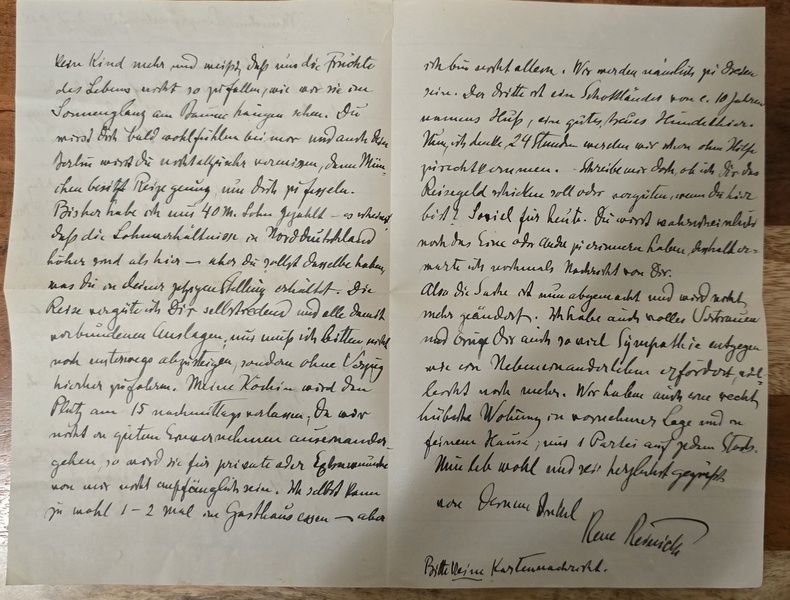 kein Kind mehr und weißt, daß uns die Früchte
des Lebens nicht so zufallen, wie wir sie im
Sonnenglanz am Baume hängen sehen. Du
wirst Dich bald wohlfühlen bei mir und auch dein
Berlin wirst du nicht allzusehr vermissen, denn Mün-
chen besitzt Reize genug um Dich zu fesseln.
Bisher habe ich nur 40 M. Lohn gezahlt – es scheint
daß die Lohnverhältnisse in Norddeutschland
höher sind als hier – aber du sollst dasselbe haben,
was du in deiner jetzigen Stellung erhältst. Die
Reise vergüte ich Dir selbstredend und alle damit
verbundenen Auslagen, nur muß ich bitten nicht
noch unterwegs abzusteigen, sondern ohne Verzug
hierher zu fahren. Meine Köchin wird den
Platz am 15 nachmittags verlassen, da wir
nicht in gutem Einvernehmen auseinander
gehen, so wird sie für private oder Extrawünsche
von mir nicht empfänglich sein. Ich selbst kann
ja wohl 1–2 mal im Gasthaus essen – aber
ich bin nicht allein. Wir werden nämlich zu Dreien
sein. Der Dritte ist ein Schottländer von c. 10 Jahren
namens Huß, eine gutes, treues Hundetier.
Nun, ich denke, 24 Stunden werden wir schon ohne Hilfe
zurechtkommen. – Schreibe mir doch, ob ich Dir das
Reisegeld schicken soll oder vergüten, wenn du hier
bist? Soviel für heute. Du wirst wahrscheinlich
noch das Eine oder Andere zu erinnern haben, deshalb er-
warte ich nochmals Nachricht von Dir.
Also die Sache ist nun abgemacht und wird nicht
mehr geändert. Ich habe auch volles Vertrauen
und bringe Dir auch so viel Sympathie entgegen
wie ein Nebeneinanderleben erfordert, viel-
leicht noch mehr. Wir haben auch eine recht
hübsche Wohnung in vornehmer Lage und in
feinem Hause; nur 1 Partei auf jedem Stock.
Nun leb wohl und sei herzlichst gegrüßt
von Deinem Onkel
Rene Reinick
Bitte keine Kartennachricht.